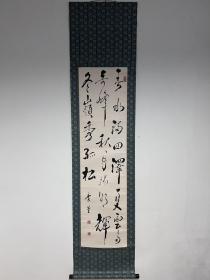 春水満四澤夏雲多
奇峰秋月揚明輝
冬嶺秀孤松